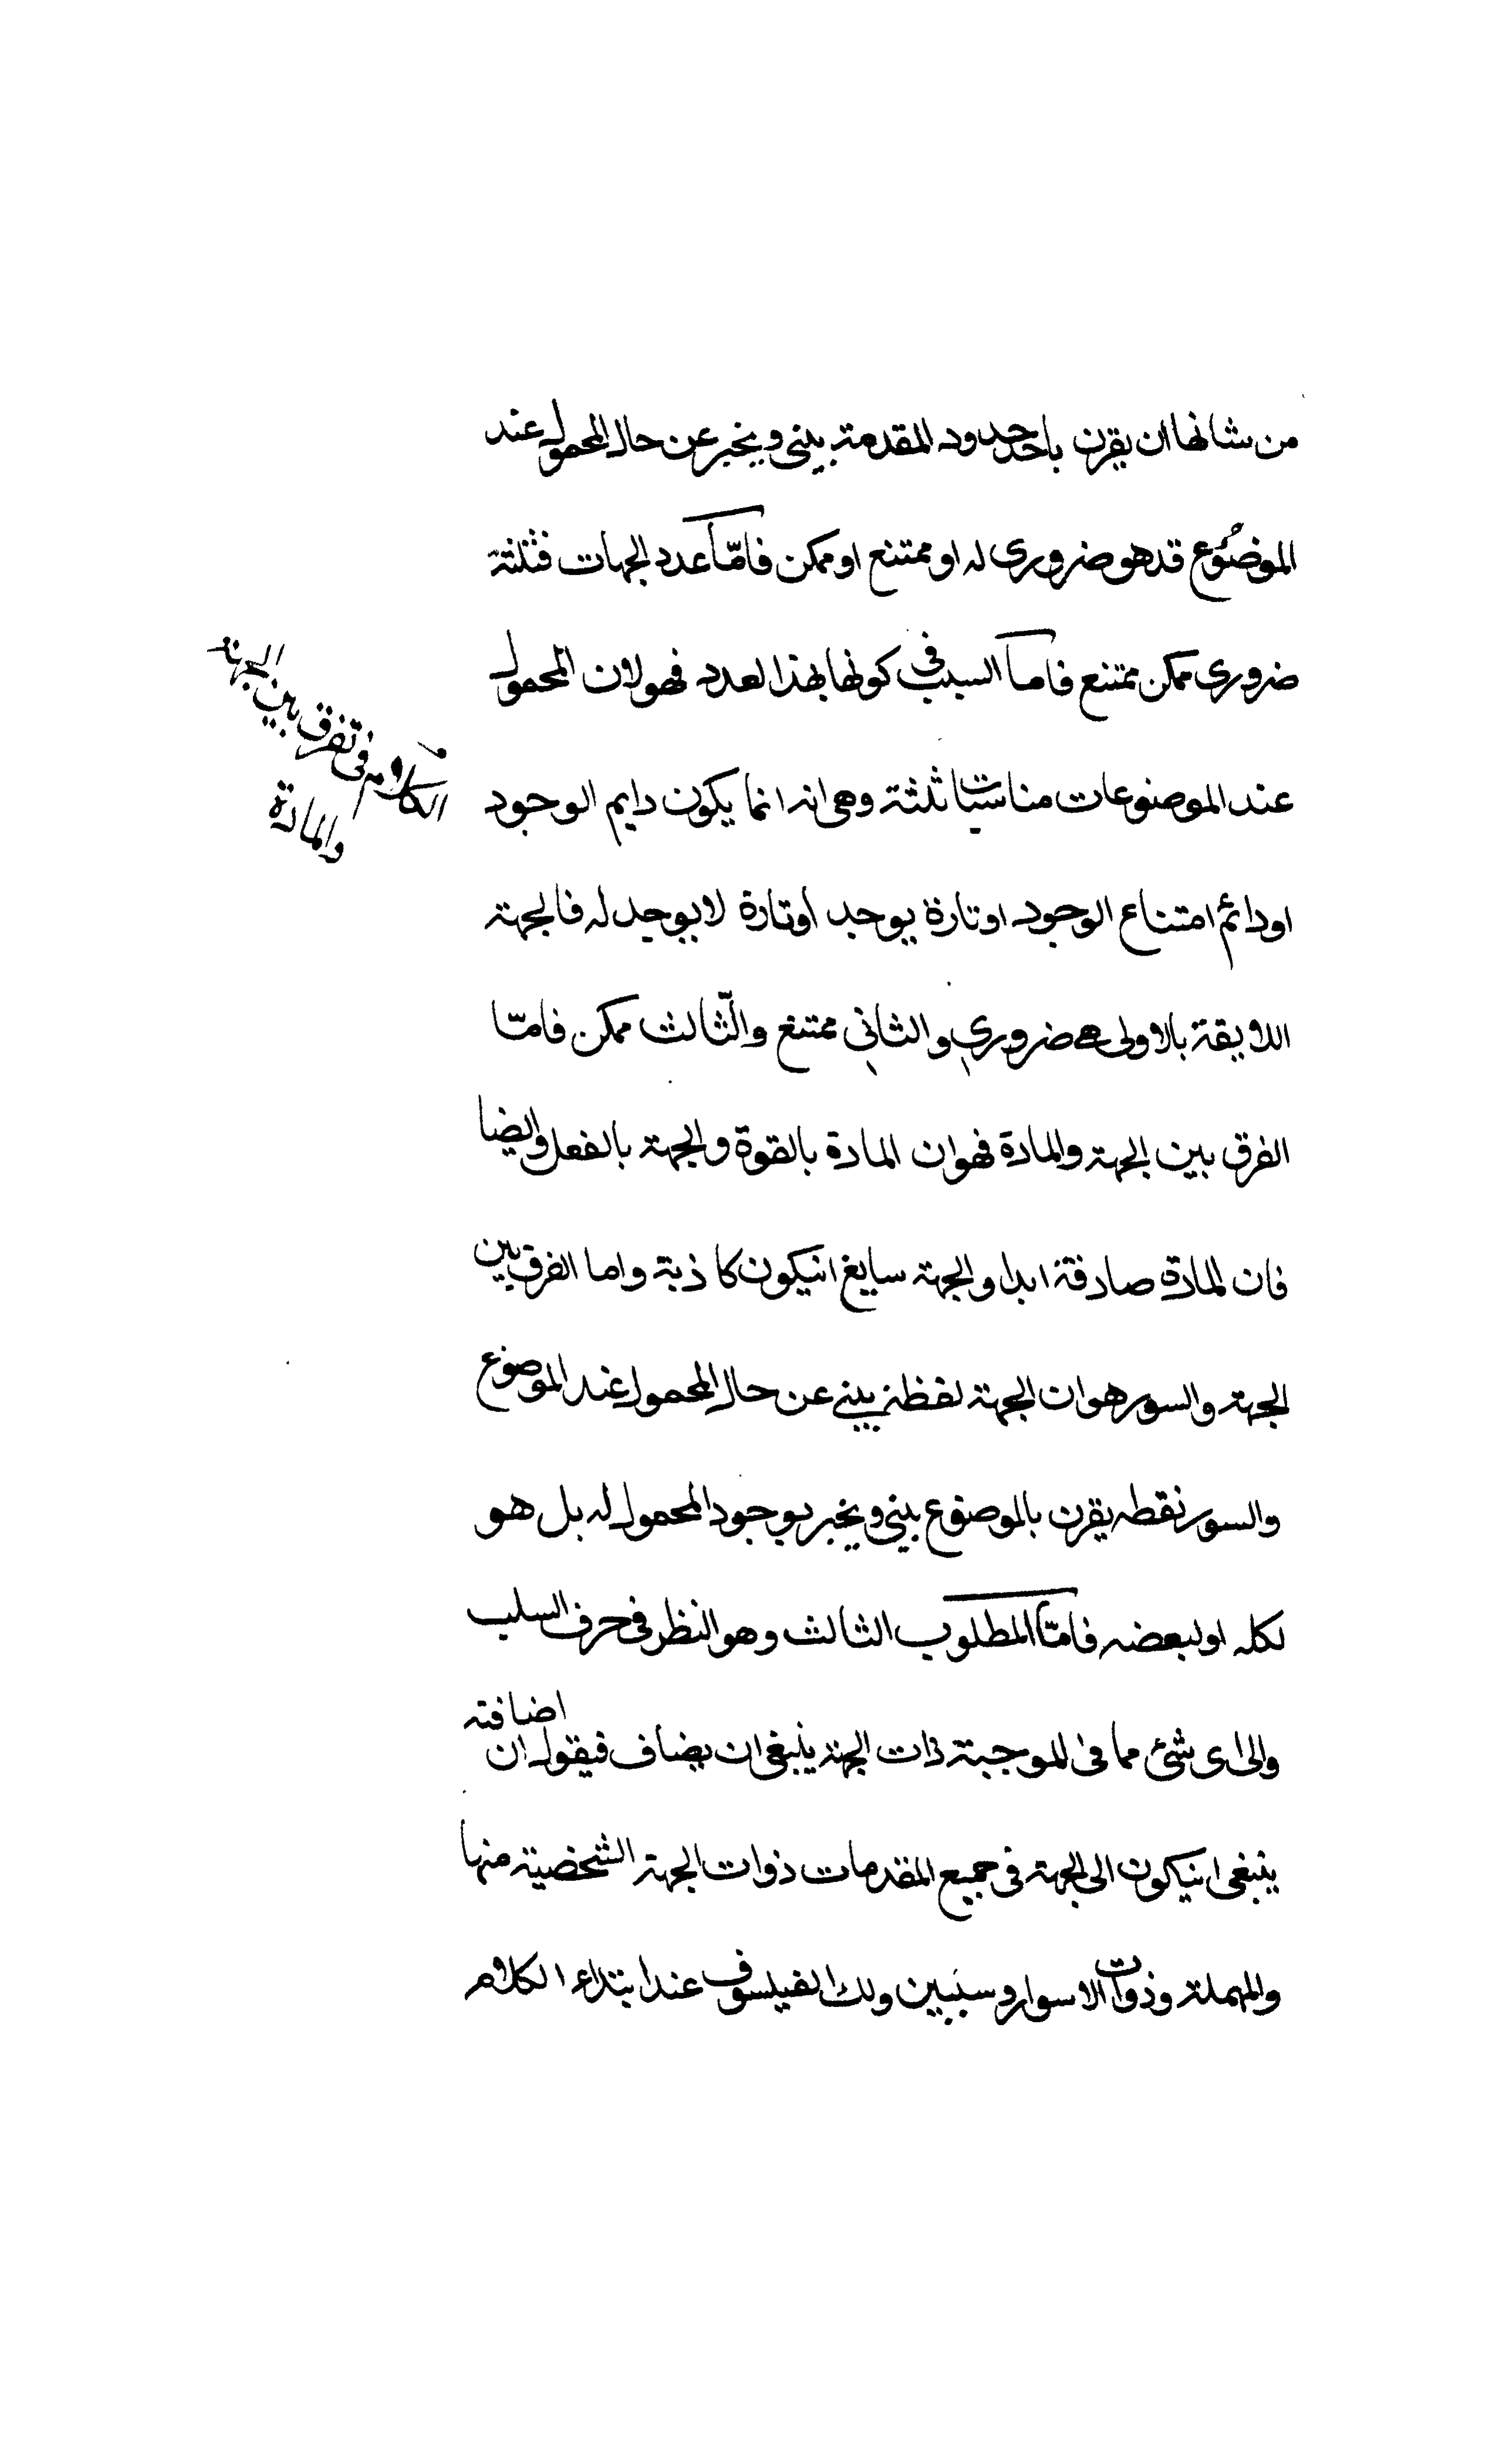 من شانها ان يقرن باحد حدود المقدمة ينبى ويخبر عن حال المحمول عند
الموضوع قد هو ضرورى له او ممتنع او ممكن فامّا عدد الجهات فثلثة
ضرورى ممكن ممتنع فاما السبب فى كونها بهذا لعدد فهو لان المحمول
عند الموضوعات مناسبات ثلثة وهى انه انما يكون دايم الوجود
او دائم امتناع الوجود او تارة يوجد او تارة لا يوجد له فالجهة
اللايقة بالاولى هى ضرورى والثانى ممتنع والثّالث ممكن فامّا
الفرق بين الجهة والمادة فهو ان المادة بالقوة والجهة بالفعل وايضا
فان المادة صادقة ابدا والجهة سايغ انيكون كاذبة واما الفرق بين
الجهة والسور هو ان الجهة لفظة ينبى عن حال المحمول عند الموضوع
والسور نقطه يقرن بالموضوع ينبى ويخبر بوجود المحمول له بل هو
لكله او لبعضه فامّا المطلوب الثالث وهو النظر فى حرف السلب
والى اى شئ مما فى الموجبة ذات الجهة ينبغى ان يضاف فيقول ان اضافته
ينبغى انيكون الى الجهة فى جميع المقدمات ذوات الجهة الشخصية منها
والمهملة وذوات الاسوار وسيبين ولك الفيلسوف عند ابتداء الكلام
الكلام فى تفرق بين الجهة
والمادة